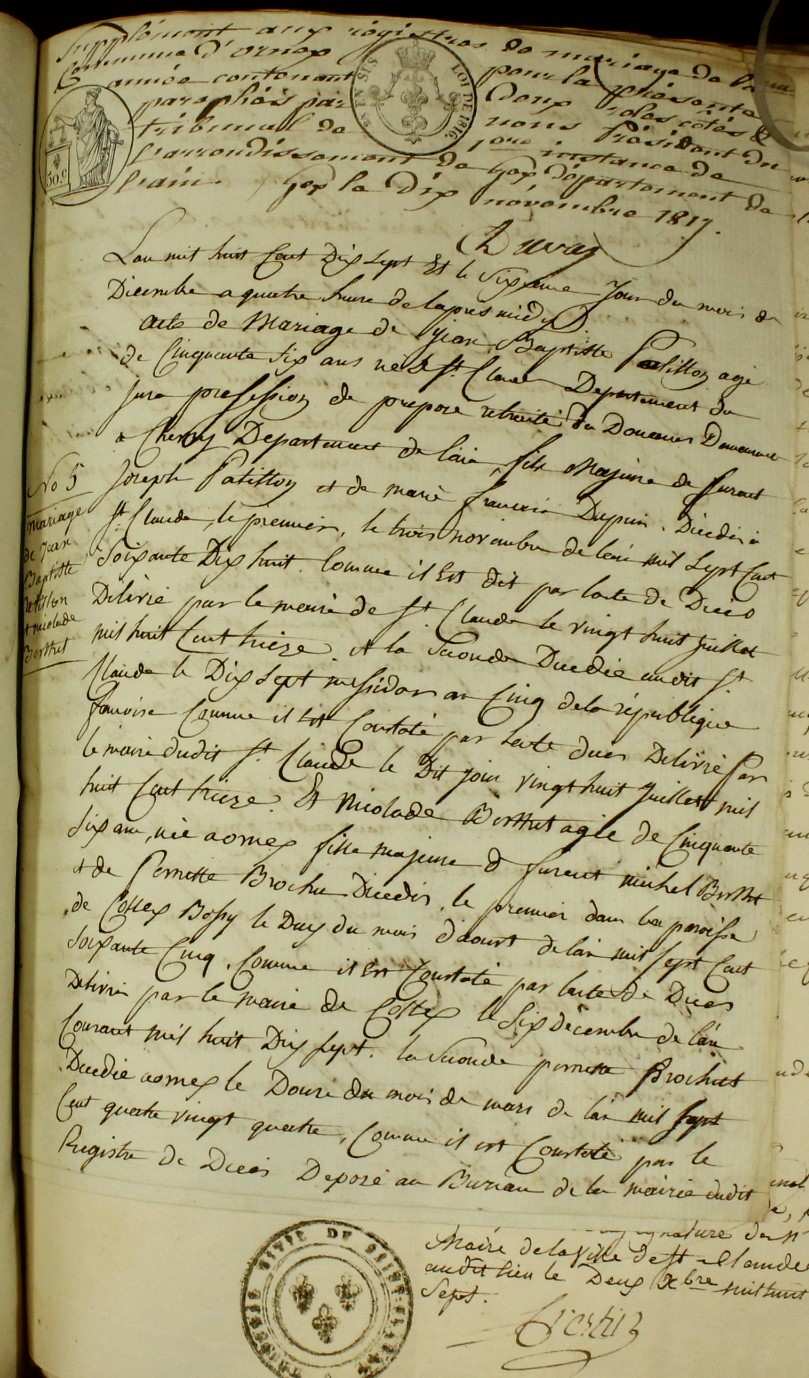 Supplément aux régistres de mariage de la
Commune d'Ornex pour la présente
année contenant Deux des côtés &
paraphés par nous Président du
tribunal de 1ere instance de
l'arrondissement de Gex Département de
l'ain. Gex le Dix novembre 1817.
ET EN SUS LOI DE 1816
50 c
Duval
Lan mil huit Cent Dix Sept Et le Sixieme Jour du mois de
Dicembre a quatre heure de lapres midy
Acte de Mariage de Jean Baptiste Patillon agé
de Cinquante Six ans né à St Claude Departement du
Jura profession de préposé retraité des Douanes Demeurant
a Chevry Departement de lain, fils Majeure de furent
Joseph Patillon et de marie francoise Dupuis. Dicedés à
St Claude, le premier, le trois novembre de lan mil Sept Cent
Soixante Dix huit. Comme il Est dit par lacte de Dices
Delivré par le maire de St Claude le vingt huit Juillet
mil huit Cent treize. et la Seconde Dicedie audit St
Claude le Dix Sept messidor an Cinq de la république
francoise Comme il Est Constaté par lacte dices Delivré par
le maire dudit St Claude le Dit jour vingt huit Juillet mil
huit Cent treize. Et Nicolade Berthet agée de Cinquante
Six ans, née a ornex fille majeure de furent michel Berthet
et de Pernette Brochu Dicedés, le premier dans la paroisse
de Collex Bossy le Duy du mois d'aoust de lan mil Sept Cent
Soixante Cinq, Comme il Est Constaté par lacte De Dices
Delivré par le maire de Collex le Six décembre de lan
Courant mil huit Dix Sept. la Seconde pernette Brochut
Dicedie a ornex le Douze du mois de mars de lan mil Sept
Cent quatre vingt quatre, Comme il est Constaté par le
Registre de Dices Déposé au Bureau de la mairie dudit
No 5
mariage
de Jean
Baptiste
Patillon
et nicolade
Berthet
signature du Sr
Maire de la Ville de St Claude
audit lieu le Deux Xbre mil huit
Sept.
TRIBUNAL CIVIL DE SAINT-CLAUDE